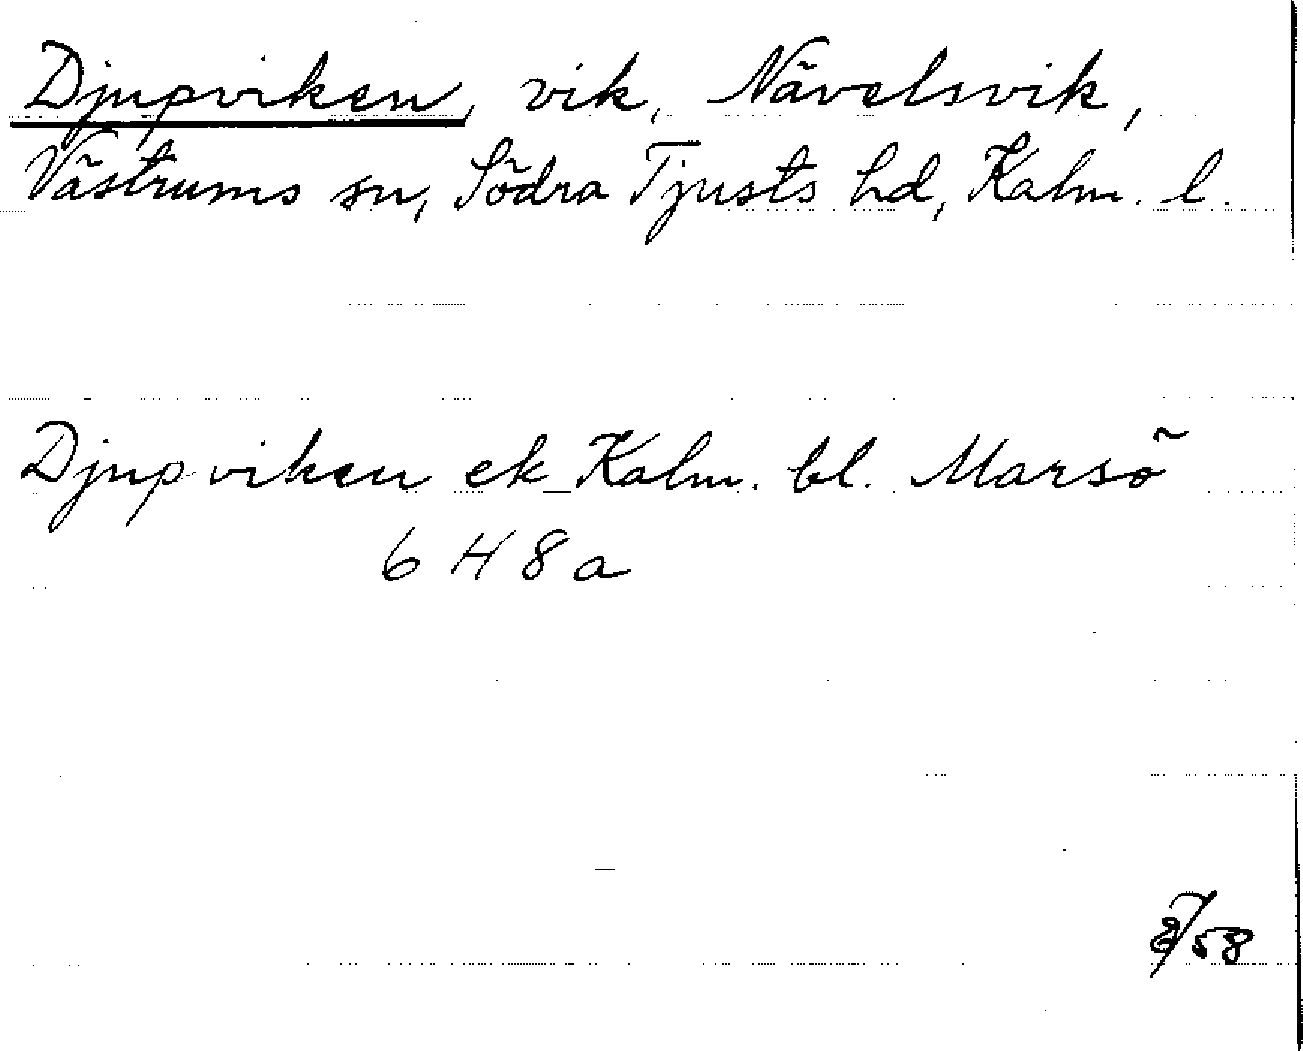 Djupviken, vik, Nävelsvik,
Västrums sn, Södra Tjusts hd, Kalm. l.
Djupviken ek Kalm. bl. Marsö
6 H 8 a
58